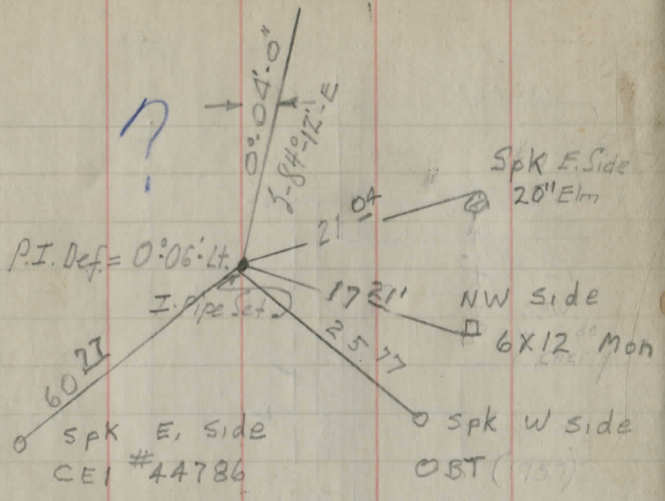 ?
0°-04'-0"
S-84°-12'-E
Spk E. Side
20" Elm
21 04
P.I. Def. = 0°06' Lt.
I. Pipe Set
17 21'
NW side
6X12 Mon
25.77
60 77
Spk E, side
CEI #44786
Spk W side
OBT (1957)